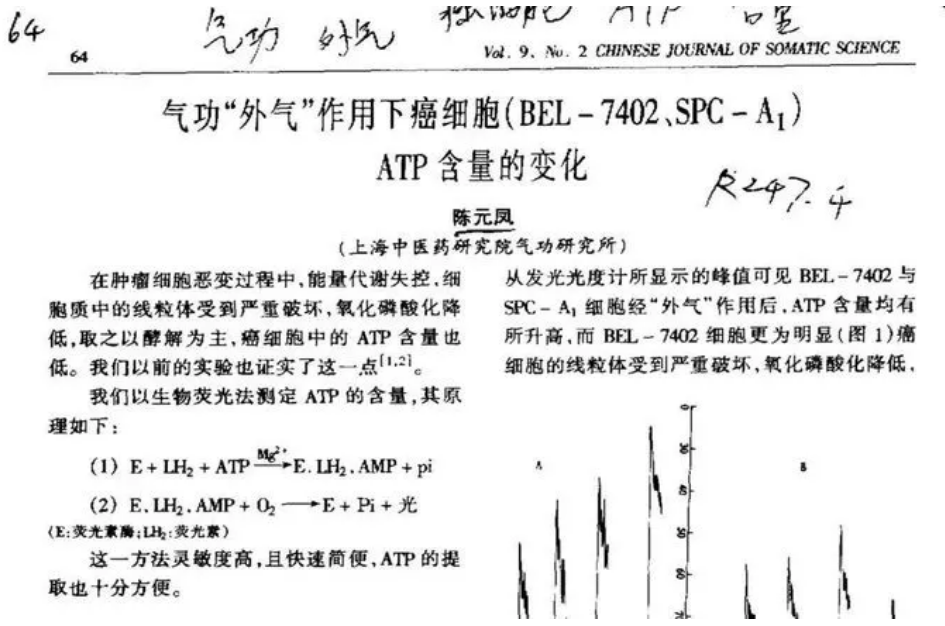 64
气功 外气 癌细胞 ATP 含量
64
Vol. 9, No. 2 CHINESE JOURNAL OF SOMATIC SCIENCE
气功“外气”作用下癌细胞(BEL－7402、SPC－A₁)
ATP 含量的变化
R247.4
陈元凤
(上海中医药研究院气功研究所)
在肿瘤细胞恶变过程中,能量代谢失控,细
胞质中的线粒体受到严重破坏,氧化磷酸化降
低,取之以酵解为主,癌细胞中的 ATP 含量也
低。我们以前的实验也证实了这一点[1,2]。
我们以生物荧光法测定 ATP 的含量,其原
理如下:
(1) E + LH₂ + ATP —Mg²⁺→ E. LH₂. AMP + pi
(2) E. LH₂. AMP + O₂ ⟶ E + Pi + 光
(E:荧光素酶;LH₂:荧光素)
这一方法灵敏度高,且快速简便,ATP 的提
取也十分方便。
从发光光度计所显示的峰值可见 BEL－7402 与
SPC－A₁ 细胞经“外气”作用后,ATP 含量均有
所升高,而 BEL－7402 细胞更为明显(图 1)癌
细胞的线粒体受到严重破坏,氧化磷酸化降低,
A
B